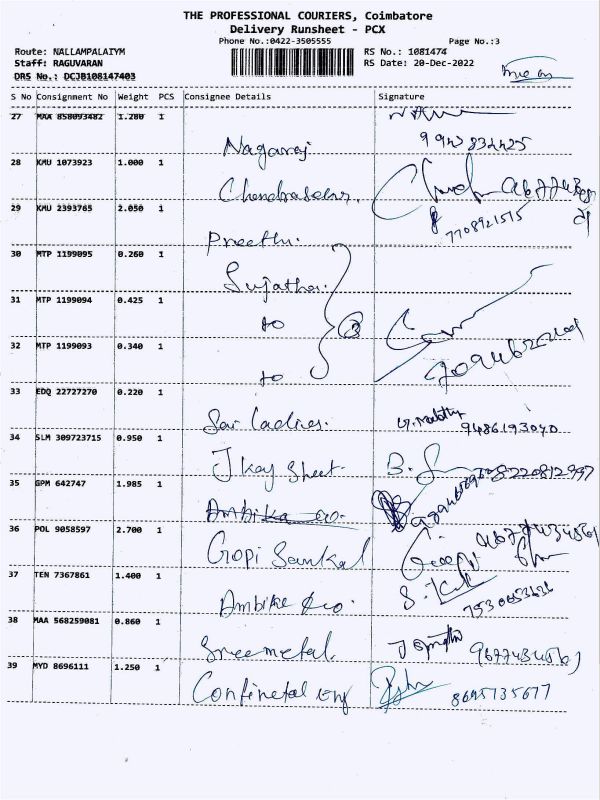 THE PROFESSIONAL COURIERS, Coimbatore
Delivery Runsheet - PCX
Phone No.:0422-3505555 Page No.:3
Route: NALLAMPALAIYM RS No.: 1081474
Staff: RAGUVARAN RS Date: 20-Dec-2022
DRS No.: DCJB108147403
S No Consignment No Weight PCS Consignee Details Signature
27 MAA 858093482 1.280 1
Nagaraj
28 KMU 1073923 1.000 1
29 KMU 2393765 2.050 1
7708921515
Preethi.
30 MTP 1199095 0.260 1
Sujatha.
31 MTP 1199094 0.425 1
to 3
32 MTP 1199093 0.340 1
to
33 EDQ 22727270 0.220 1
Sai Ladies. 9486193040
34 SLM 309723715 0.950 1
J Kay Sheet. B.
35 GPM 642747 1.985 1 8220812997
Ambika co.
36 POL 9058597 2.700 1
Gopi Sankal
37 TEN 7367861 1.400 1
Ambika &co.
38 MAA 568259081 0.860 1
Sree metal.
39 MYD 8696111 1.250 1
Confinetal Eng 8695135677